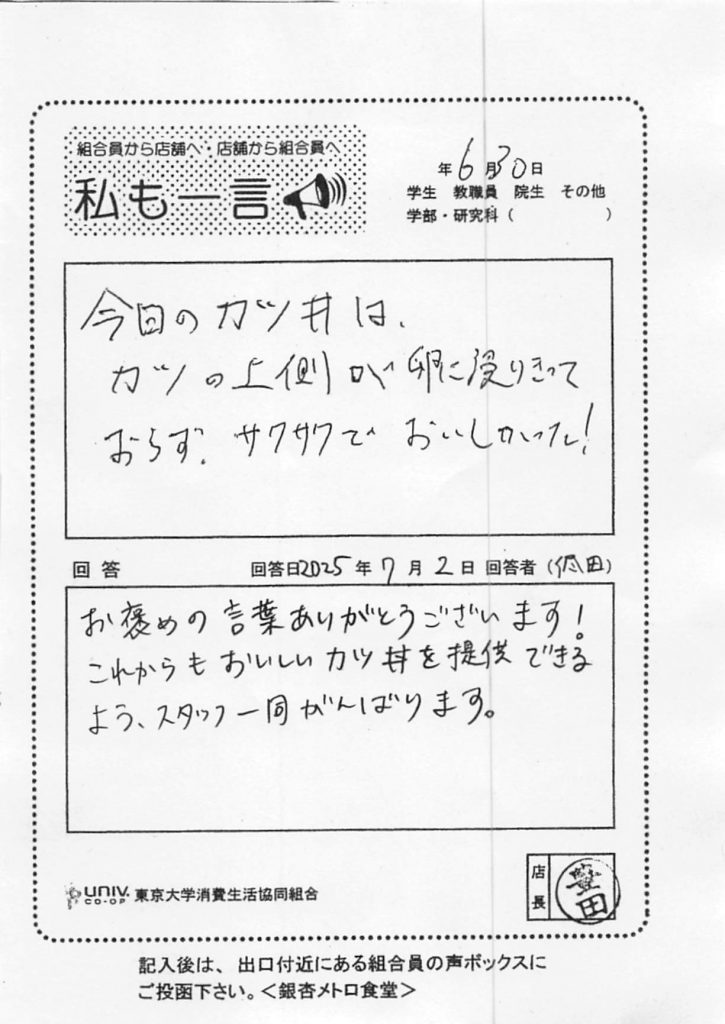 組合員から店舗へ・店舗から組合員へ
私も一言
年6月30日
学生 教職員 院生 その他
学部・研究科( )
今日のカツ丼は、
カツの上側が卵に浸りきって
おらず、サクサクでおいしかった!
回答 回答日2025年7月2日 回答者(田)
お褒めの言葉ありがとうございます!
これからもおいしいカツ丼を提供できる
よう、スタッフ一同がんばります。
UNIV. CO-OP 東京大学消費生活協同組合
店長 豊田
記入後は、出口付近にある組合員の声ボックスに
ご投函下さい。<銀杏メトロ食堂>